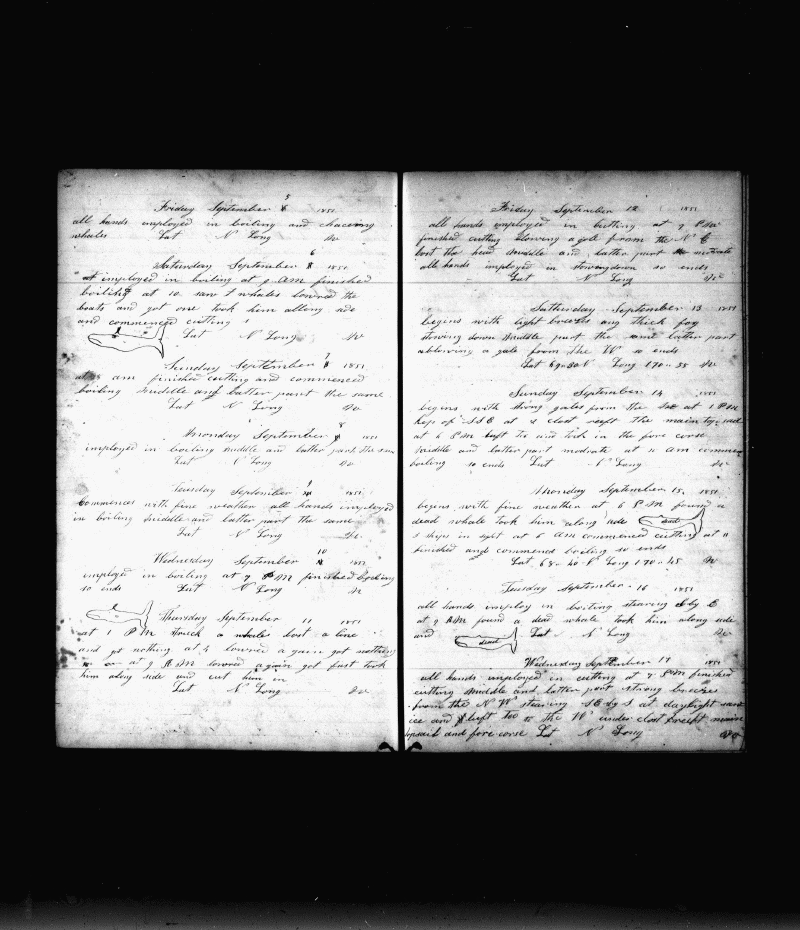 Friday September 5 1851
all hands employed in boiling and chaceing
whales Lat N Long W
Saturday September 6 1851
at employed in boiling at 9 AM finished
boiling at 10 saw whales lowred the
boats and got one took him allong side
and commenced cutting
Lat N Long W
Sunday September 7 1851
at am finished cutting and commenced
boiling middle and latter part the same
Lat N Long W
Monday September 8 1851
imployed in boiling middle and latter part the same
Lat N Long W
Tuesday September 9 1851
Commences with fine weather all hands imployed
in boiling middle and latter part the same
Lat N Long W
Wednesday September 10
imployed in boiling at 7 PM finished
so ends Lat N Long W
Thursday September 11 1851
at 1 PM struck a whale lost a line
and got nothing at 4 lowred a gain got nothing
at 9 AM lowred again got fast took
him along side and cut him in
Lat N Long W
Friday September 12 1851
all hands employed in cutting at 7 PM
finished cutting blowing a gale from the N E
lost the head middle and latter part moderate
all hands imployed in stowing down so ends
Lat N Long W
Saturday September 13 1851
begins with light breezes and thick fog
stowing down middle part the same latter part
a blowing a gale from the W so ends
Lat 69-30 N Long 170-55 W
Sunday September 14 1851
begins with strong gales from the at 1 PM
of SSE at 4 close the main top sail
at 6 PM and in the fore corse
middle and latter part modrate at 10 am commen
boiling so ends Lat N Long W
Monday September 15 1851
begins with fine weather at 6 PM found a
dead whale took him along side dead
5 ships in sight at 6 AM commenced cutting at 11
finished and commencd boiling so ends
Lat 68-40 N Long 170-45 W
Tuesday September 16 1851
all hands imploy in boiling stearing S by E
at 9 AM found a dead whale took him along side
and dead Lat N Long W
Wednesday September 17 1851
all hands imployed in cutting at 7 PM finished
cutting middle and latter part strong breezes
from the N W stearing SE by S at daylight saw
ice and luft too to the W under close reeft main
topsail and fore corse Lat N Long W